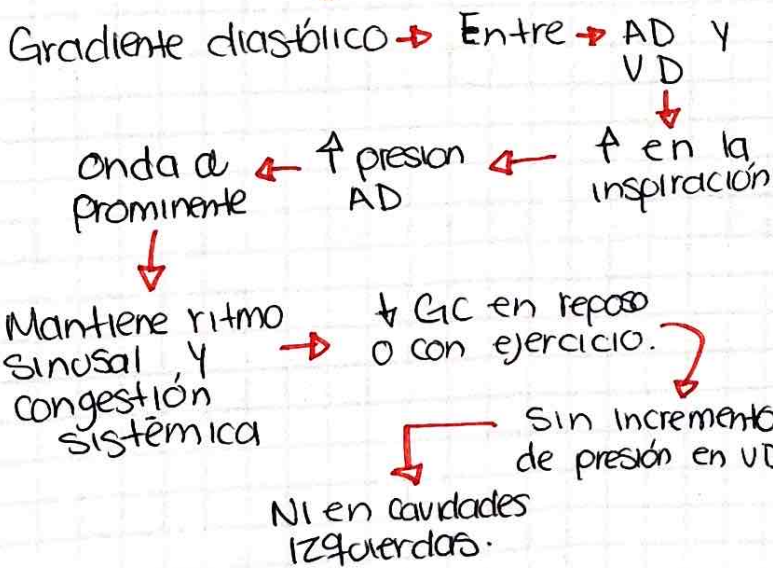 Gradiente diastólico → Entre → AD y
VD
↑ en la
inspiración
↑ presion
AD
Onda a
prominente
Mantiene ritmo
sinusal, y
congestión
sistémica
↓ GC en reposo
o con ejercicio.
Sin incremento
de presión en VD
Ni en cavidades
izquierdas.